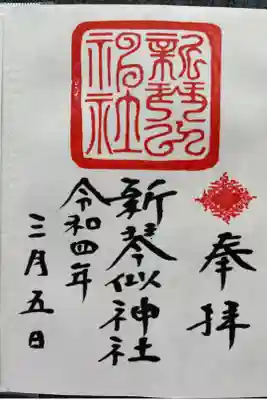 奉拝
新琴似神社
令和四年
三月五日
新琴似
神社